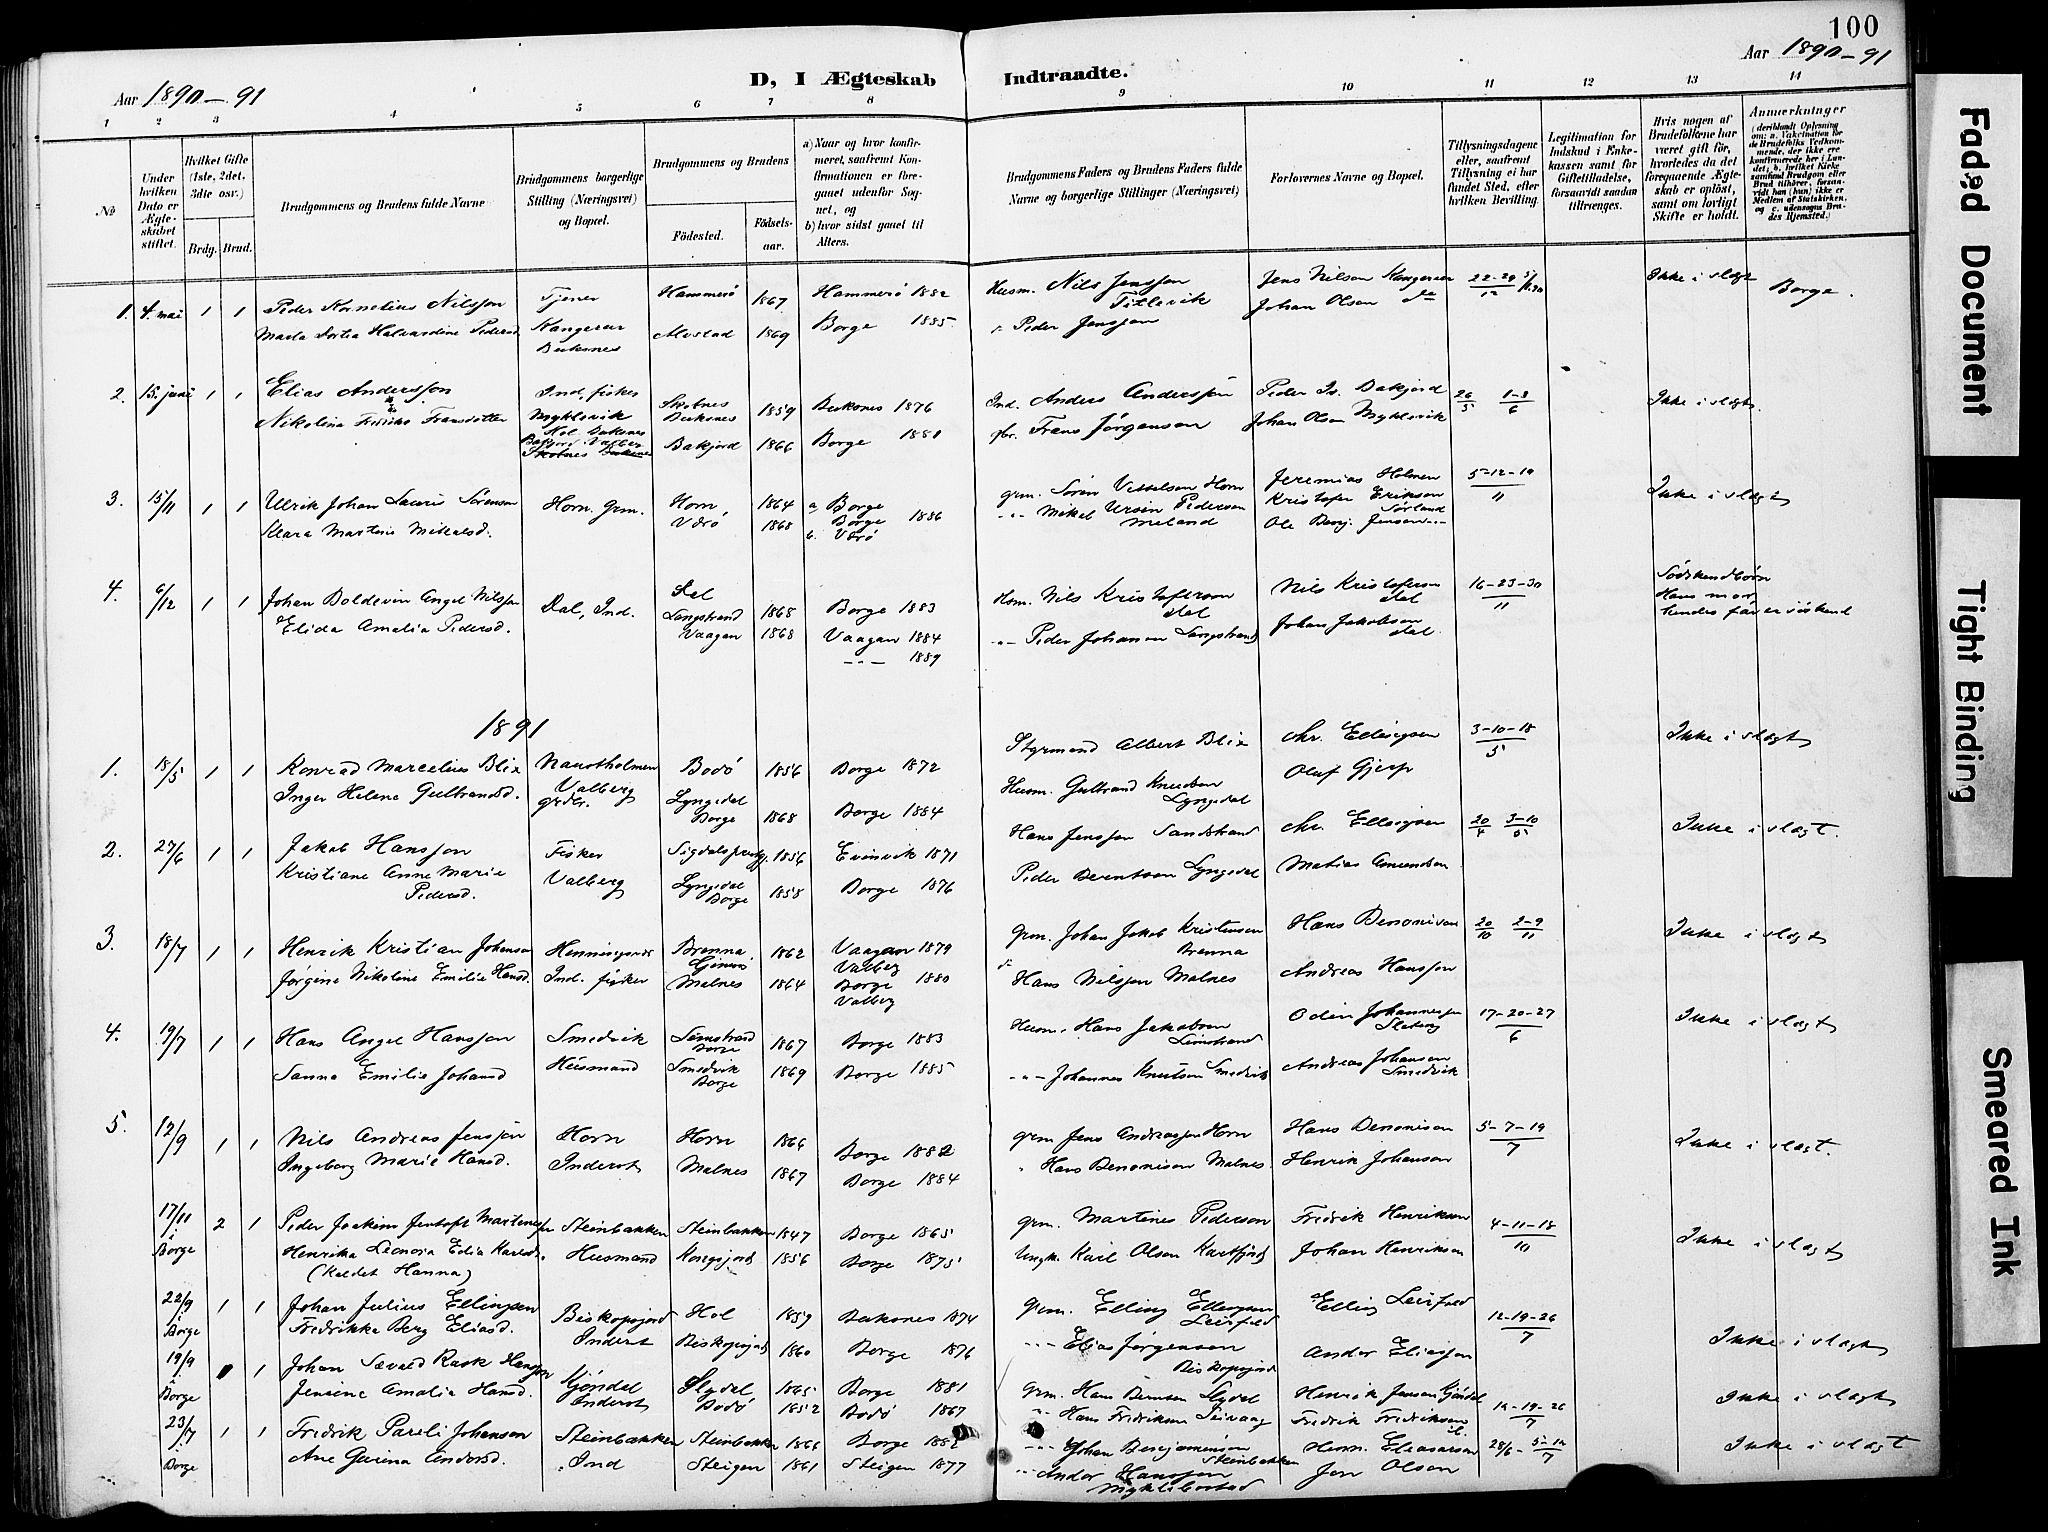 100
Aar 1890-91
D, I Ægteskab
Indtraadte.
Aar 1890-91
1 2 3 4 5 6 7 8 9 10 11 12 13 14
№
Under hvilken Dato er Ægteskabet stiftet.
Hvilket Gifte (1ste, 2det, 3die osv.)
Brdg. Brud.
Brudgommens og Brudens fulde Navne
Brudgommens borgerlige Stilling (Næringsvei) og Bopæl.
Brudgommens og Brudens
Födested. Födselsaar.
a) Naar og hvor konfirmeret, saafremt Konfirmationen er foregaaet udenfor Sognet, og
b) hvor sidst gaaet til Alters.
Brudgommens Faders og Brudens Faders fulde Navne og borgerlige Stillinger (Næringsvei)
Forlovernes Navne og Bopæl.
Tillysningsdagene eller, saafremt Tillysning ei har fundet Sted, efter hvilken Bevilling.
Legitimation for Indskud i Enkekassen samt for Giftetilladelse, forsaavidt saadan tiltrænges.
Hvis nogen af Brudefolkene har været gift för, hvorledes da det foregaaende Ægteskab er oplöst, samt om lovligt Skifte er holdt.
Anmerkninger
(deriblandt Oplysning om: a. Vakcination for de Brudefolks Vedkommende, der ikke ere konfirmerede her i Landet; b. hvilket Kirkesamfund Brudgom eller Brud tilhörer, forsaavidt han (hun) ikke er Medlem af Statskirken, og c. udensogns Brudes Hjemsted.)
1. 4. mai 1 1 Peder Kornelius Nilssen Tjener Hammerö 1867 Hammerö 1882 Husm. Nils Jenssen Jens Nilsen 22-29/12 Ikke i slægt Borge.
Marta Dortea Halvardine Pedersd. Buksnes Alvstad 1869 Borge 1885 Peder Jenssen Johan Olsen do
2. 15. juni 1 1 Elias Anderssen Ind, fisker Skotnes Buksnes 1859 Buksnes 1876 Ind. Anders Anderssen Peder Is. Bakjord 26/5 1-8/6 Ikke i slægt.
Nikolina Fransdotter Myklevik Hol Buksnes Bakjord 1866 Borge 1881 Frans Jörgensen Johan Olsen Myklevik
Bakjord Valberg
Skotnes Buksnes
3. 15/11 1 1 Ulrik Johan Lauri Sörensen Horn. Grm. Horn, 1864 a. Borge grm. Sören Horn Jeremias Holmen 5-12-19/11 Ikke i slægt
Klara Martine Mikkelsd. Værö 1868 Borge 1886 Mikal Ursin Pedersen Meland Kristofer Eriksen Sörland
b. Værö Ole Benj. Jensen
4. 6/12 1 1 Johan Boldevin Angel Nilssen Dal, Ind. Dal Husm. Nils Kristofersen Dal Nils Kristofersen Dal 16-23-30/11 Södskendbörn
Elida Amalia Pedersd. Langstrand 1868 Borge 1883 Peder Johansen Langstrand Johan Jakobsen Dal Hans mor,
Vaagan 1868 Vaagan 1884 hendes far er söskend
1889
1891
1. 18/5 1 1 Konrad Marcelius Blix Naustholmen Bodö 1856 Borge 1872 Styrmand Albert Blix Chr. Ellingsen 3-10-18/5 Ikke i slægt
Inger Helene Gulbrandsd. Valberg Lyngedal Borge 1868 Borge 1884 Husm. Gulbrand Knudsen Lyngedal Oluf Gjerp
2. 27/6 1 1 Jakob Hanssen Fisker 1856 Evinvik 1871 Hans Jenssen Sandstrand Chr. Ellingsen 20/4 3-10/5 Ikke i slægt.
Kristiane Anne Marie Pedersd. Valberg Lyngedal Borge 1858 Borge 1876 Peder Berentsen Lyngedal Matias Amundsen
3. 18/7 1 1 Henrik Kristian Johansen Brenna Gimsö 1862 Vaagan 1879 Valberg grm. Johan Jakob Kristensen Brenna Hans Benonisen 20/10 2-9/11 Ikke i slægt
Jörgine Nikoline Emilie Hansd. Ind. fisker Malnes 1864 Borge 1880 Valberg Hans Nilssen Malnes Andreas Hanssen
4. 19/7 1 1 Hans Angel Hanssen Smedvik Limstrand Borge 1867 Borge 1883 Husm. Hans Jakobsen Limstrand Odin Johannessen 17-20-27/6 Ikke i slægt
Sanna Emilie Johansd Husmand Smedvik Borge 1869 Borge 1885 Johannes Knutsen Smedvik Andreas Johansen Smedvik
5. 12/9 1 1 Nils Andreas Jenssen Horn Horn 1866 Borge 1882 grm Jens Andreassen Horn Hans Benonisen 5-7-19/7 Ikke i slægt.
Ingeborg Marie Hansd. Inderst Malnes 1867 Borge 1884 Hans Benonisen Malnes Henrik Johansen
17/11 i Borge 2 1 Peder Joakim Jentoft Martinessen Steinbakken Steinbakken 1847 Borge 1865 grm. Martines Pederson Fredrik Henriksen 4-11-18/10 Ikke i slægt
Henrika Leonora Edia Karlsd. Husmand 1856 Borge 1875 Ungk. Karl Olsen Johan Henriksen
(kaldet Hanna)
22/9 i Borge 1 1 Johan Julius Ellingsen Biskopsjord Hol 1859 Buksnes 1874 grm. Elling Ellingsen Leirfald Elling Leirfald 12-19-26/7 Ikke i slægt
Fredrikka Berg Eliasd. Inderst Biskopsjord 1860 Borge 1876 Elias Jörgensen Biskopsjord Andor Eliassen
19/9 i Borge 1 1 Johan Rask Hanssen Gjöndal Slydal 1865 Borge 1881 grm. Hans Berntsen Slydal Henrik Jensen Gjöndal 12-19-26/7 Ikke i slægt
Jensine Amalia Hansd. Inderst Bodö 1852 Bodö 1867 Hans Fredriksen Leivaag Fredrik Fredriksen
23/7 i Borge 1 1 Fredrik Pareli Johansen Steinbakken Steinbakken 1866 Borge 1882 Johan Benjaminsen Steinbakken Henr. Eliasarsen 28/6 - 5-12/7 Ikke i slægt
Ane Gurina Andorsd. Ind Steigen 1861 Steigen 1877 Andor Hanssen Myklebostad Jon Olsen
Faded Document
Tight Binding
Smeared Ink